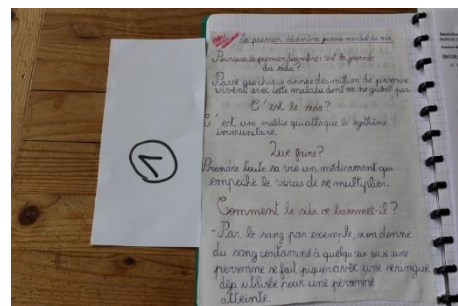 Le premier décembre journée mondial du sida
Pourquoi le premier décembre c'est la journée
du sida?
Parce que chaque année des million de personne
vivent avec cette maladie dont on ne guérit pas.
C'est le sida?
C'est une maladie qui attaque le système
immunitaire.
Que faire?
Prendre toute sa vie un médicament qui
empeche le virus de se multiplier.
Comment le sida se transmet-il?
- Par le sang par exemple, si on donne
du sang contaminé à quelqu'un ou si une
personne se fait piquer avec une seringue
déja utilisée pour une personne
atteinte.
1